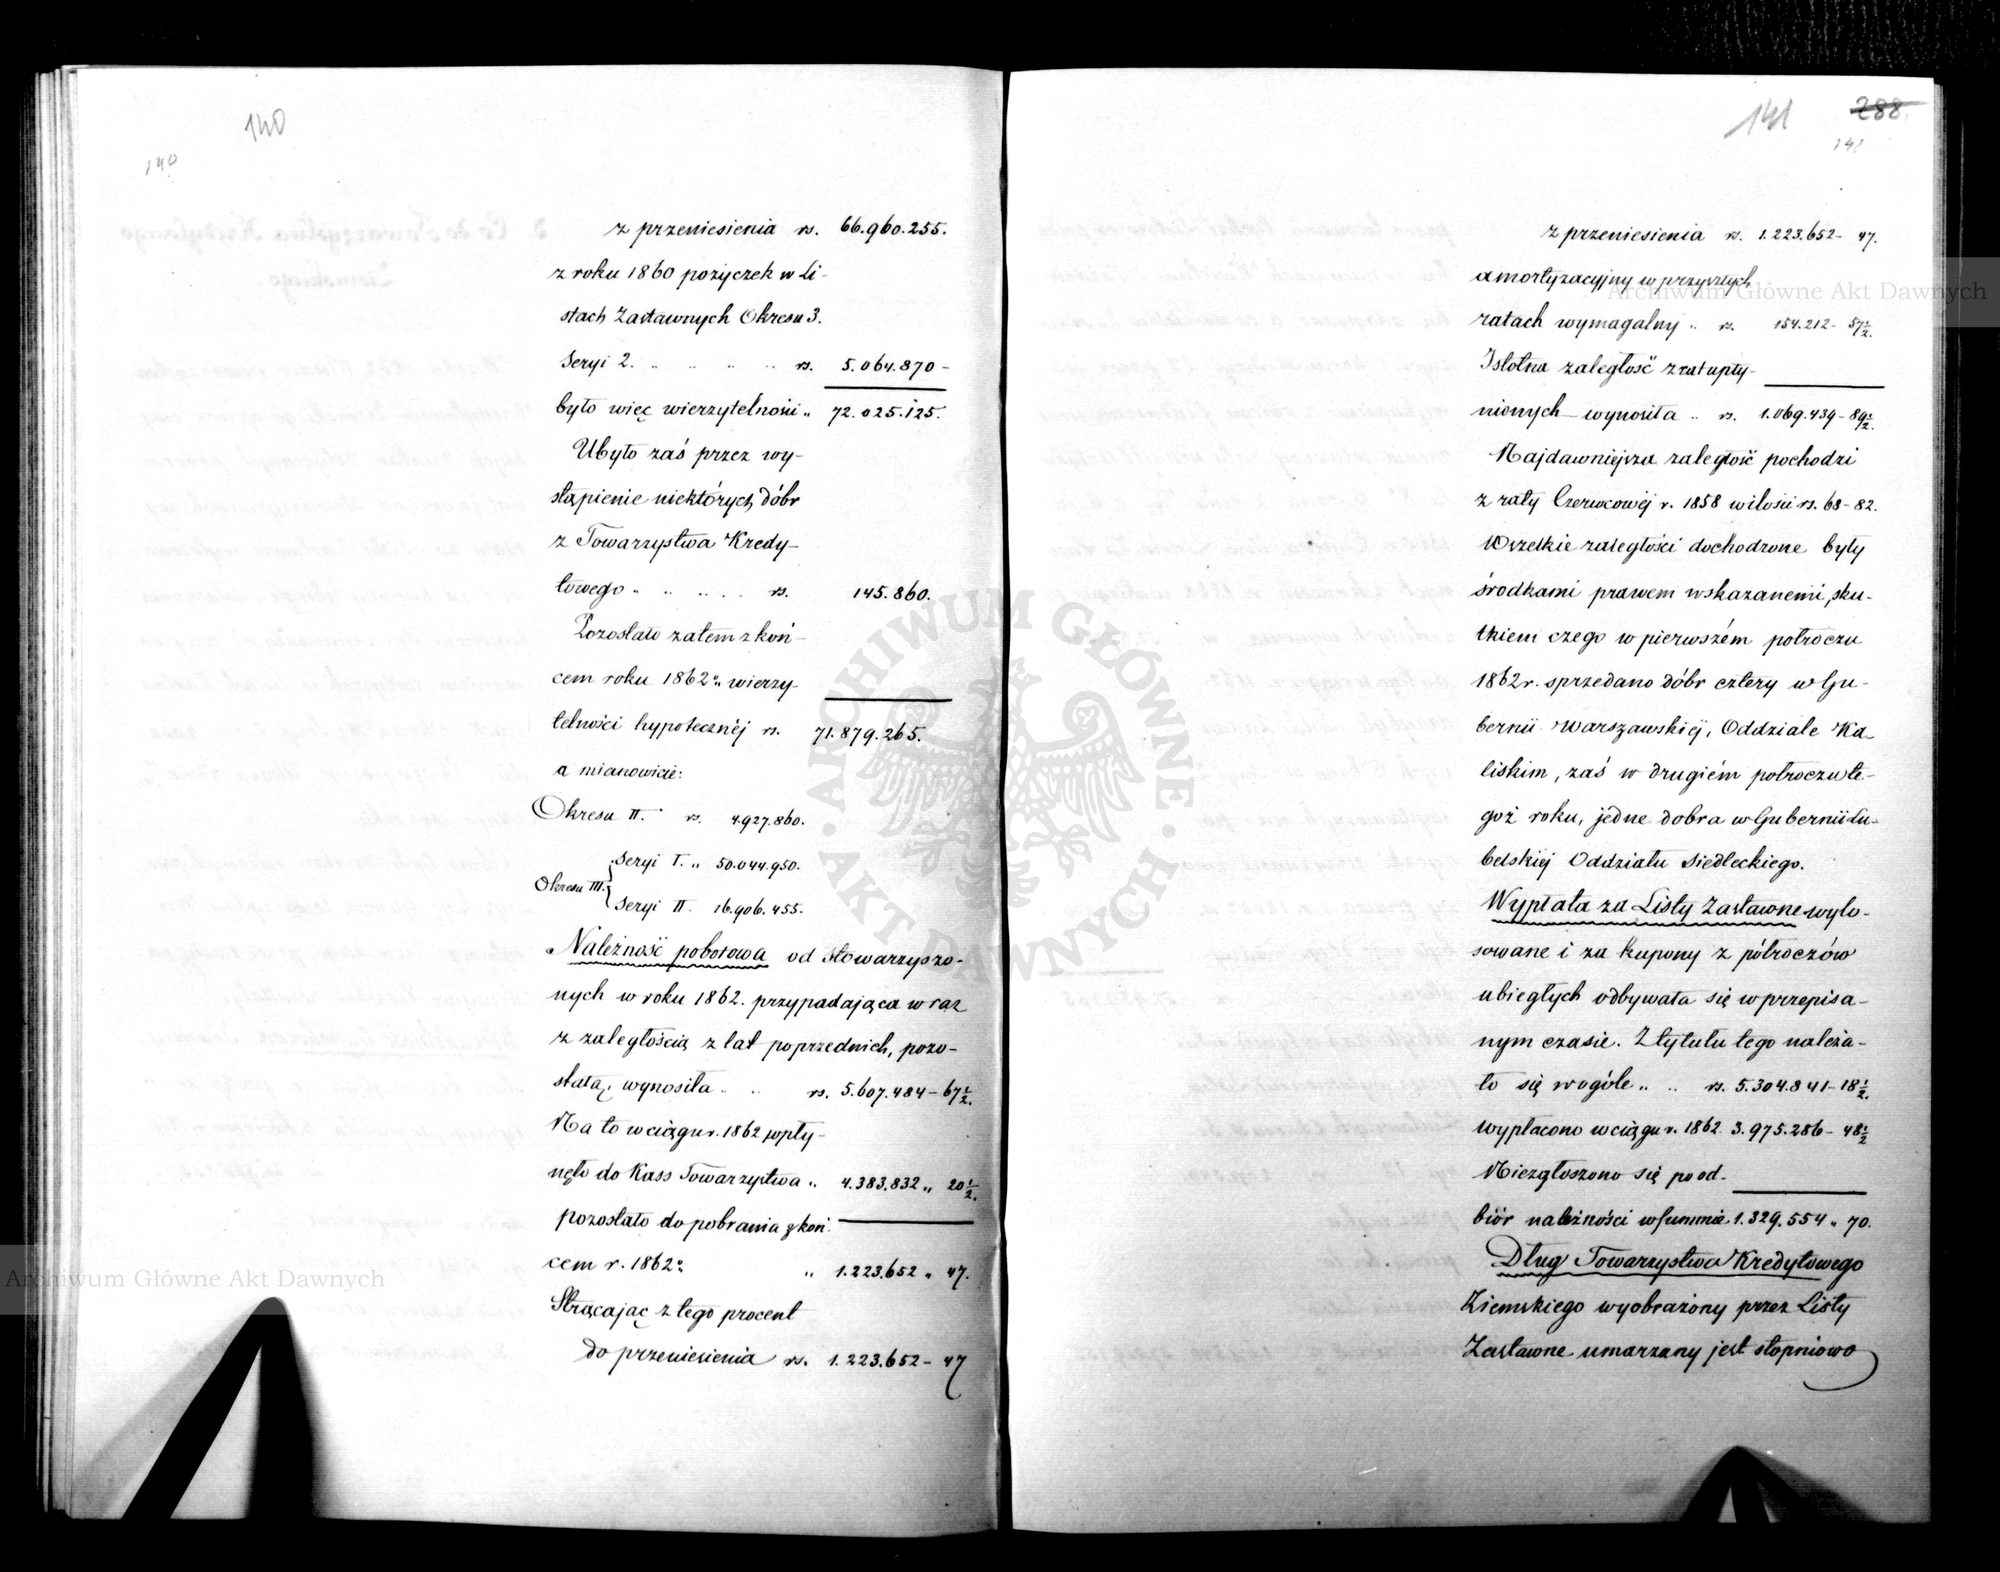 140
140
z przeniesienia rs. 66.960.255.
z roku 1860 pożyczek w Li-
stach Zastawnych Okresu 3.
Seryi 2. .. .. .. .. rs. 5.064.870 -
było więc wierzytelności „ 72.025.125.
Ubyło zaś przez wy-
stąpienie niektórych dóbr
z Towarzystwa Kredy-
towego .. .. .. .. rs. 145.860.
Pozostało zatem z koń-
cem roku 1862 r. wierzy-
telności hypotecznéj rs. 71.879.265.
a mianowicie:
Okresu II. rs. 4.927.860.
Okresu III. { Seryi I. „ 50.044.950.
Seryi II. 16.906.455.
Należność poborowa od Stowarzyszo-
nych w roku 1862. przypadająca wraz
z zaległością z lat poprzednich, pozo-
stałą, wynosiła .. .. rs. 5.607.484 - 67½.
Na to w ciągu r. 1862 wpły-
nęło do Kass Towarzystwa „ 4.383.832 „ 20½.
pozostało do pobrania z koń-
cem r. 1862 r. „ 1.223.652 „ 47.
Strącając z tego procent
do przeniesienia rs. 1.223.652 - 47
141
288.
141
z przeniesienia rs. 1.223.652 - 47.
amortyzacyjny w przyszłych
ratach wymagalny .. rs. 154.212 - 57½.
Istotna zaległość z rat upły-
nionych wynosiła .. rs. 1.069.439 - 89½.
Najdawniejsza zaległość pochodzi
z raty Czerwcowéj r. 1858 w ilości rs. 68 - 82.
Wszelkie zaległości dochodzone były
środkami prawem wskazanemi, sku-
tkiem czego w pierwszém półroczu
1862 r. sprzedano dóbr cztery w Gu-
bernii Warszawskiéj, Oddziale Ka-
liskim, zaś w drugiém półroczu te-
goż roku, jedne dobra w Gubernii Lu-
belskiéj Oddziału Siedleckiego.
Wypłata za Listy Zastawne wylo-
sowane i za kupony z półroczów
ubiegłych odbywała się w przepisa-
nym czasie. Z tytułu tego należa-
ło się wogóle .. .. rs. 5.304.841 - 18½.
wypłacono w ciągu r. 1862 3.975.286 - 48½
Niezgłoszono się po od-
biór należności w summie 1.329.554 „ 70.
Dług Towarzystwa Kredytowego
Ziemskiego wyobrażony przez Listy
Zastawne umarzany jest stopniowo
Archiwum Główne Akt Dawnych
Archiwum Główne Akt Dawnych
ARCHIWUM GŁÓWNE
AKT DAWNYCH